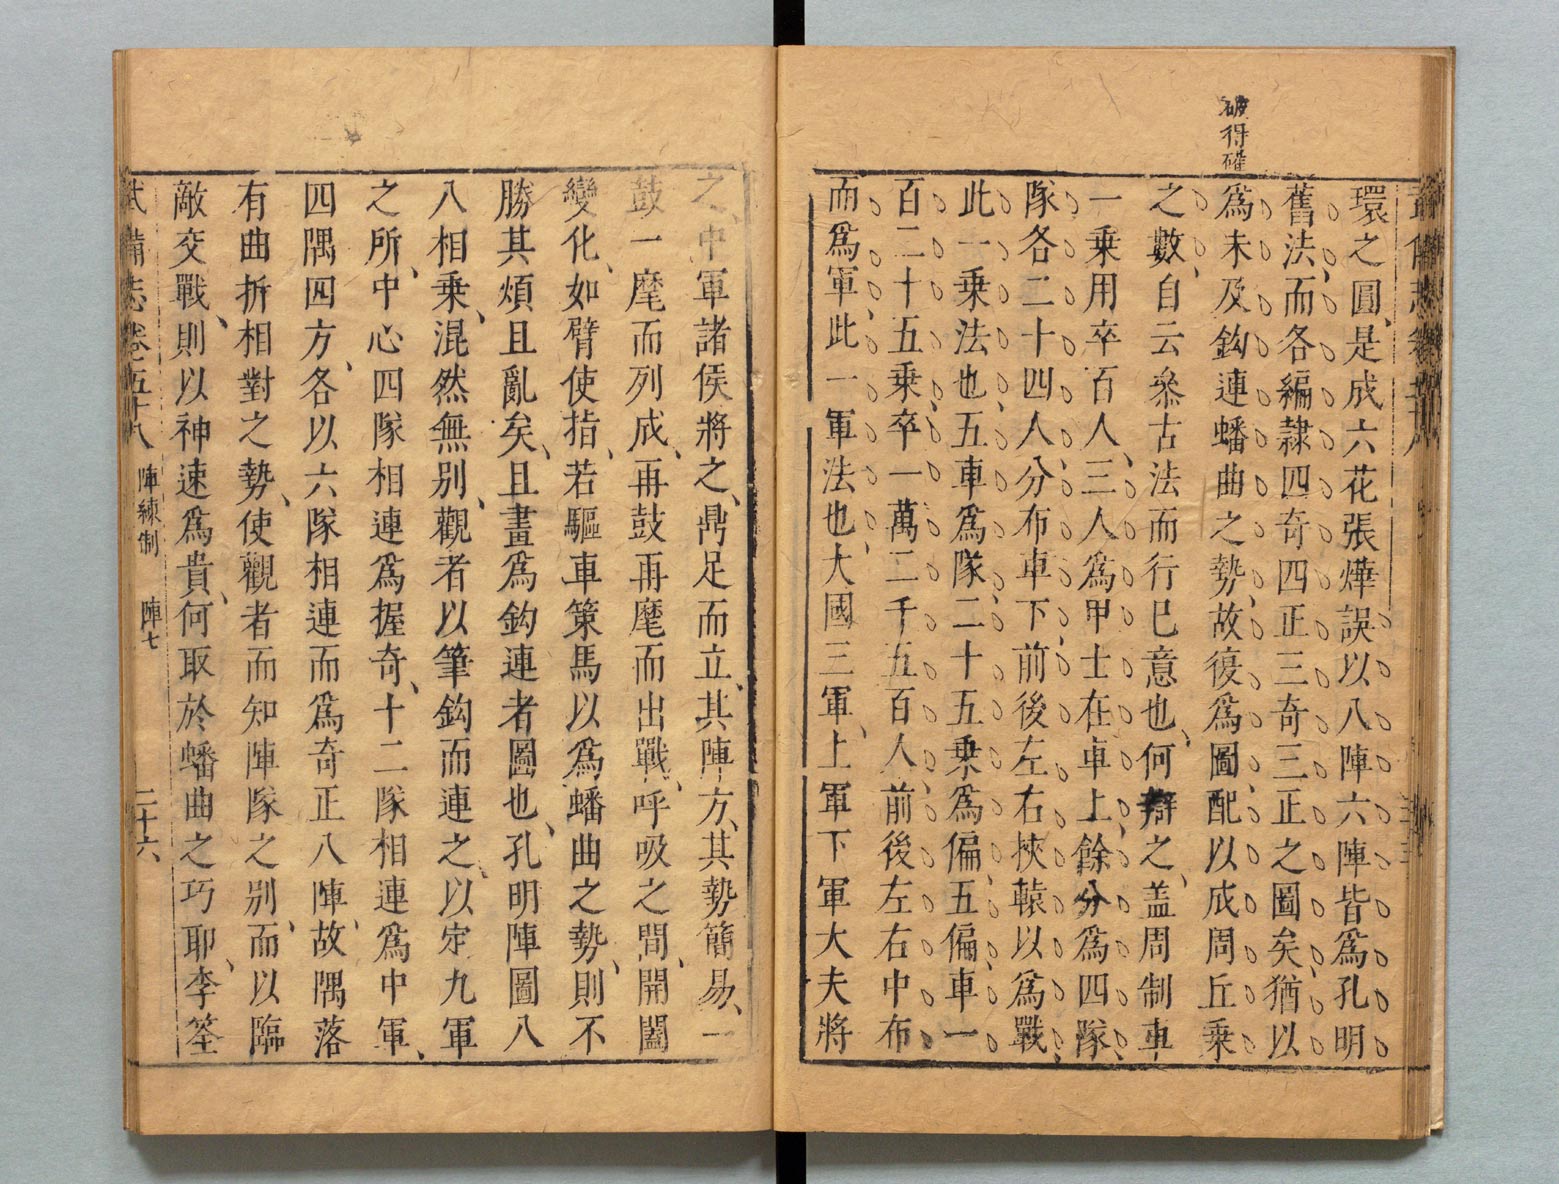 破得確
環之圓、是成六花張燁誤以八陣六陣皆爲孔明
舊法、而各編隷四奇四正三奇三正之圖矣、猶以
爲未及鈎連蟠曲之勢、故復爲圖、配以成周丘乗
之數、自云叅古法而行已意也、何辯之、盖周制車
一乗用卒百人、三人爲甲士在車上、餘分爲四隊、
隊各二十四人、分布車下前後左右挾轅以爲戰、
此一乗法也、五車爲隊、二十五乗爲偏、五偏、車一
百二十五乗、卒一萬二千五百人、前後左右中布
而爲軍、此一軍法也、大國三軍、上軍下軍大夫將
之、中軍諸侯將之、鼎足而立、其陣方、其勢簡易、一
鼓一麾而列成、再鼓再麾而出戰、呼吸之間、開闔
變化、如臂使指、若驅車策馬以爲蟠曲之勢、則不
勝其煩且亂矣、且畫爲鈎連者圖也、孔明陣圖八
八相乗、混然無别、觀者以筆鈎而連之、以定九軍
之所、中心四隊相連爲握奇、十二隊相連爲中軍、
四隅四方、各以六隊相連而爲奇正八陣、故隅落
有曲折相對之勢、使觀者而知陣隊之别、而以臨
敵交戰、則以神速爲貴、何取於蟠曲之巧耶、李筌
武備志卷五十八 陣練制 陣七 二十六